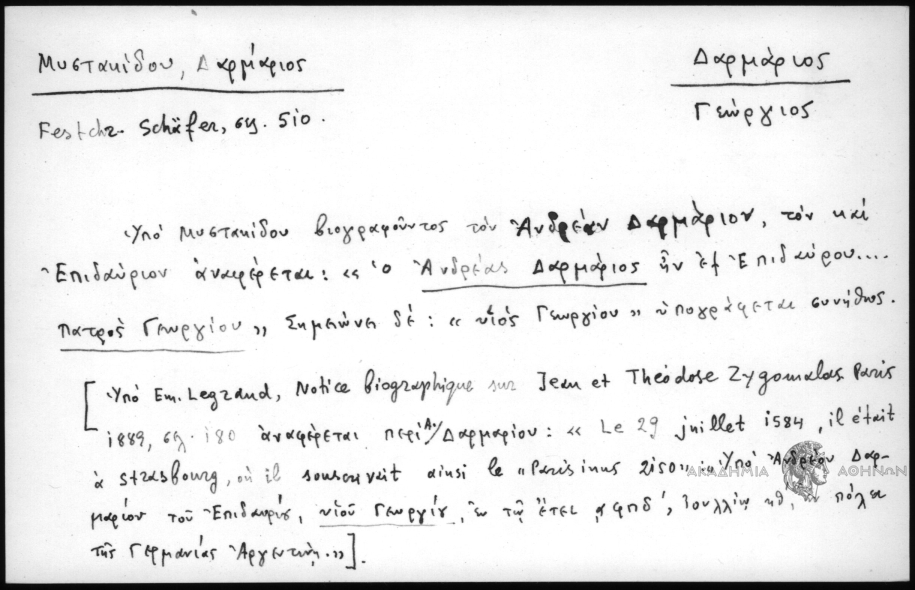 Μυστακίδου, Δαρμάριος
Δαρμάριος
Γεώργιος
Festchr. Schäfer, σελ. 510.
Ὑπὸ Μυστακίδου βιογραφοῦντος τὸν Ἀνδρέαν Δαρμάριον, τὸν καὶ
Ἐπιδαύριον ἀναφέρεται: « ὁ Ἀνδρέας Δαρμάριος ἦν ἐξ Ἐπιδαύρου....
πατρὸς Γεωργίου » Σημειώνει δέ: « υἱὸς Γεωργίου » ὑπογράφεται συνήθως.
[Ὑπὸ Em. Legrand, Notice biographique sur Jean et Théodose Zygomalas Paris
1889, σελ. 180 ἀναφέρεται περὶ Ἀ. Δαρμαρίου: « Le 29 juillet 1584, il était
à Strasbourg, où il souscrivait ainsi le «Parisinus 2150» Ὑπὸ Ἀνδρέου Δαρ-
μαρίου τοῦ Ἐπιδαυρίου, υἱοῦ Γεωργίου, ἐν τῷ ἔτει ͵αφπδ', Ἰουλλίῳ κθ', ἐν πόλει
τῆς Γερμανίας Ἀργεντίνῃ.»].
ΑΚΑΔΗΜΙΑ ΑΘΗΝΩΝ